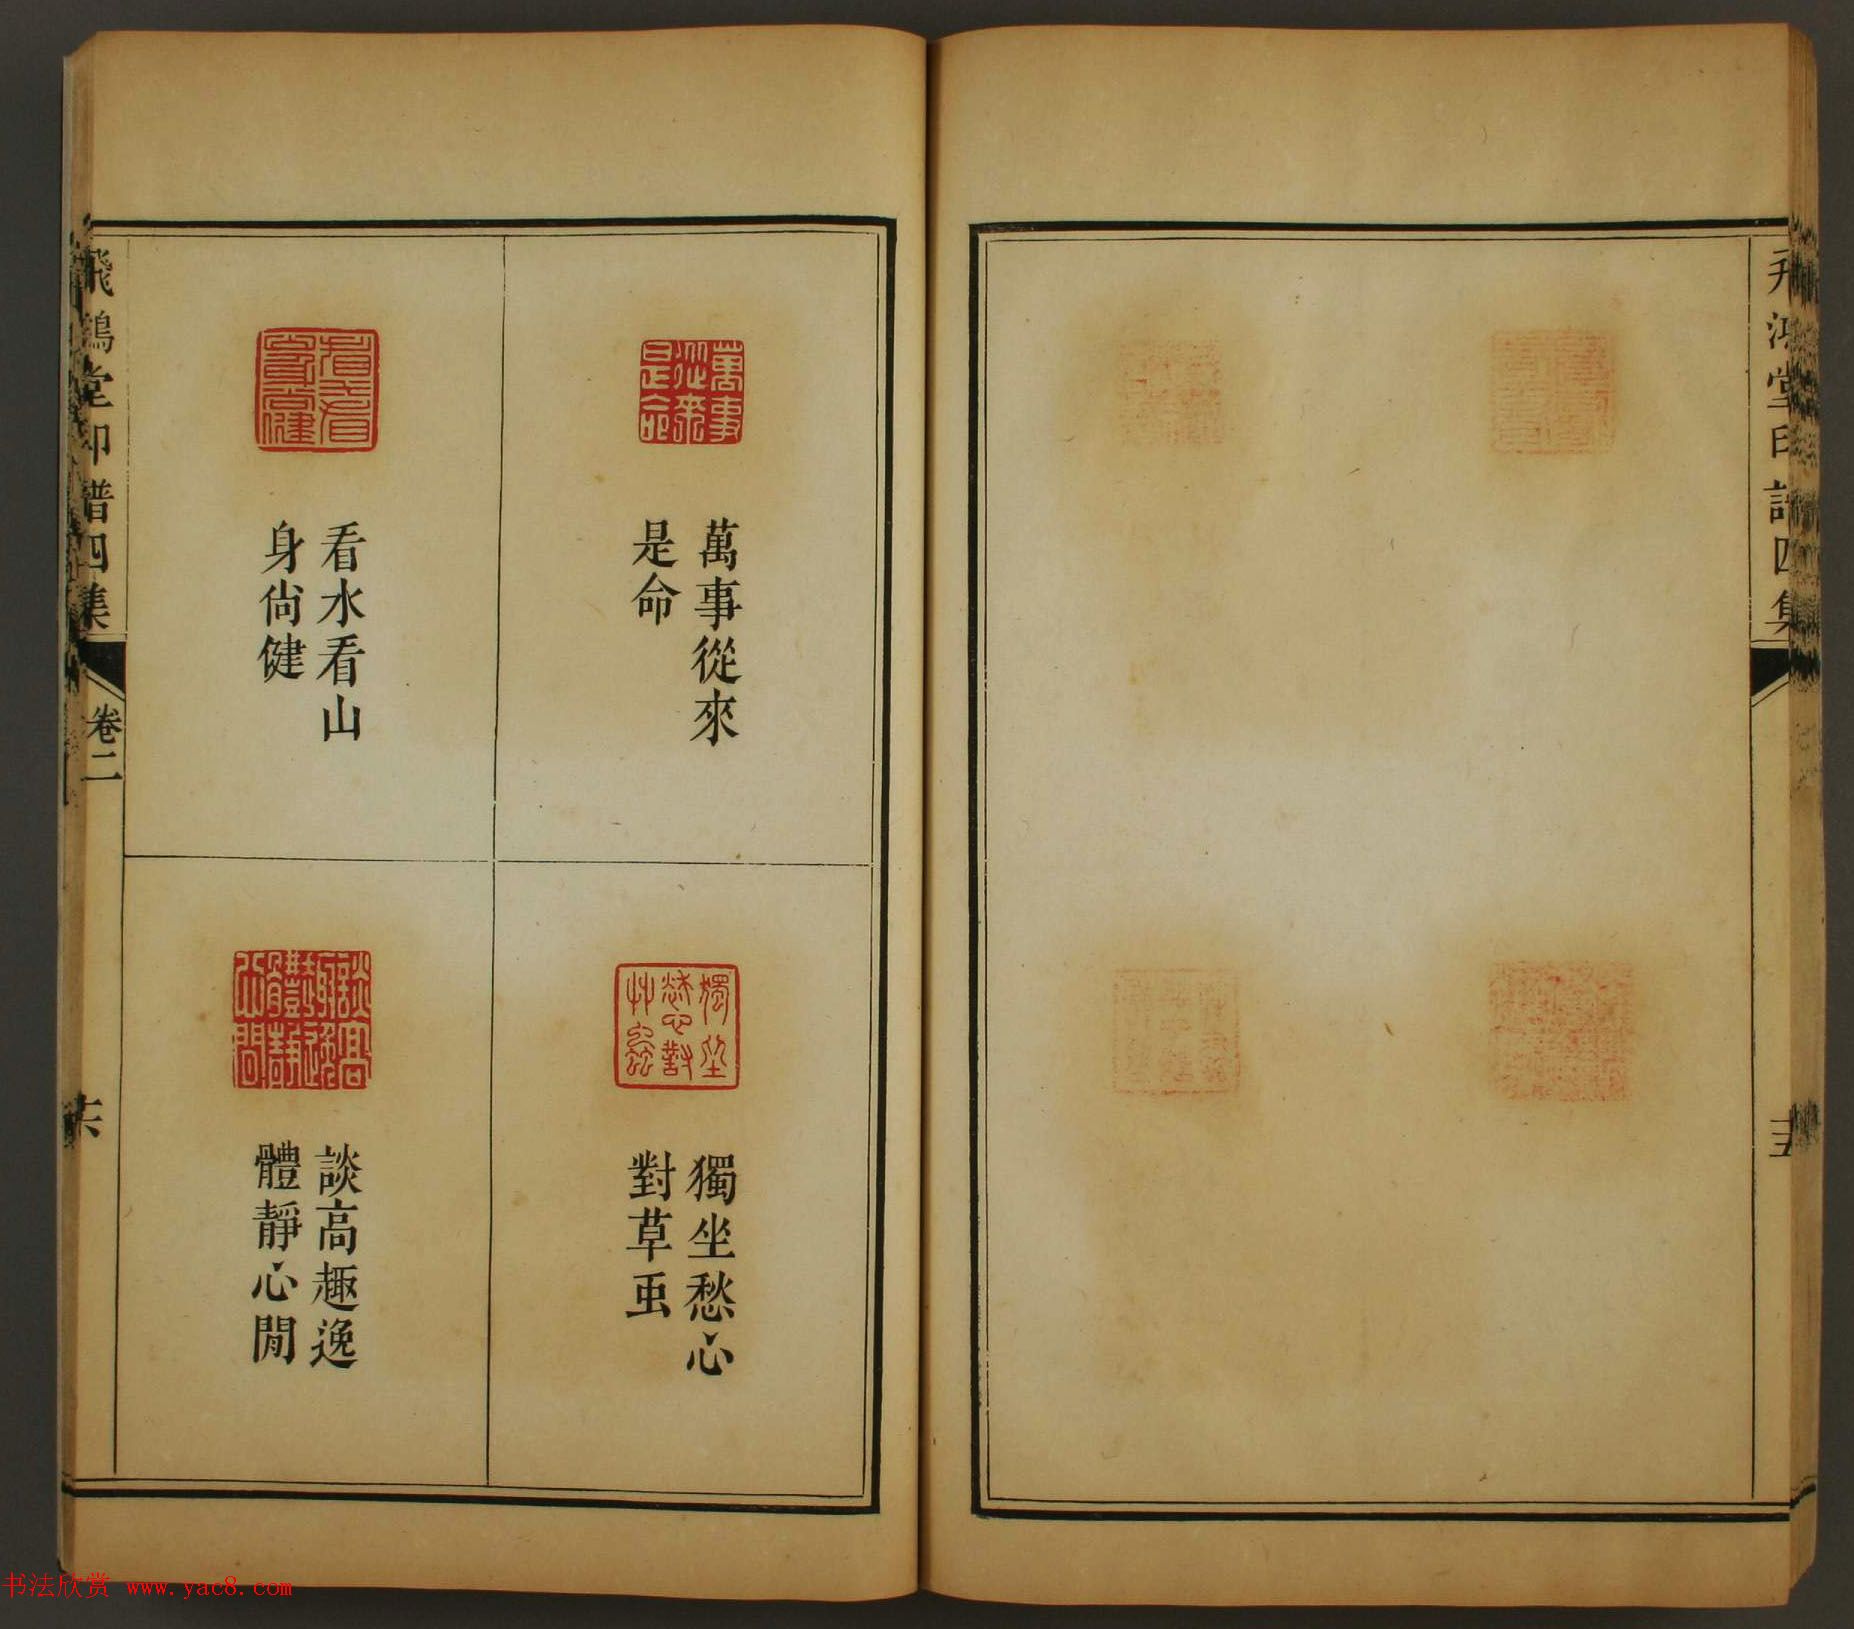 飛鴻堂印譜四集
十五
萬事從來
是命
獨坐愁心
對草䖝
看水看山
身尙健
談高趣逸
體靜心閒
飛鴻堂印譜四集
卷二
十六
书法欣赏 www.yac8.com